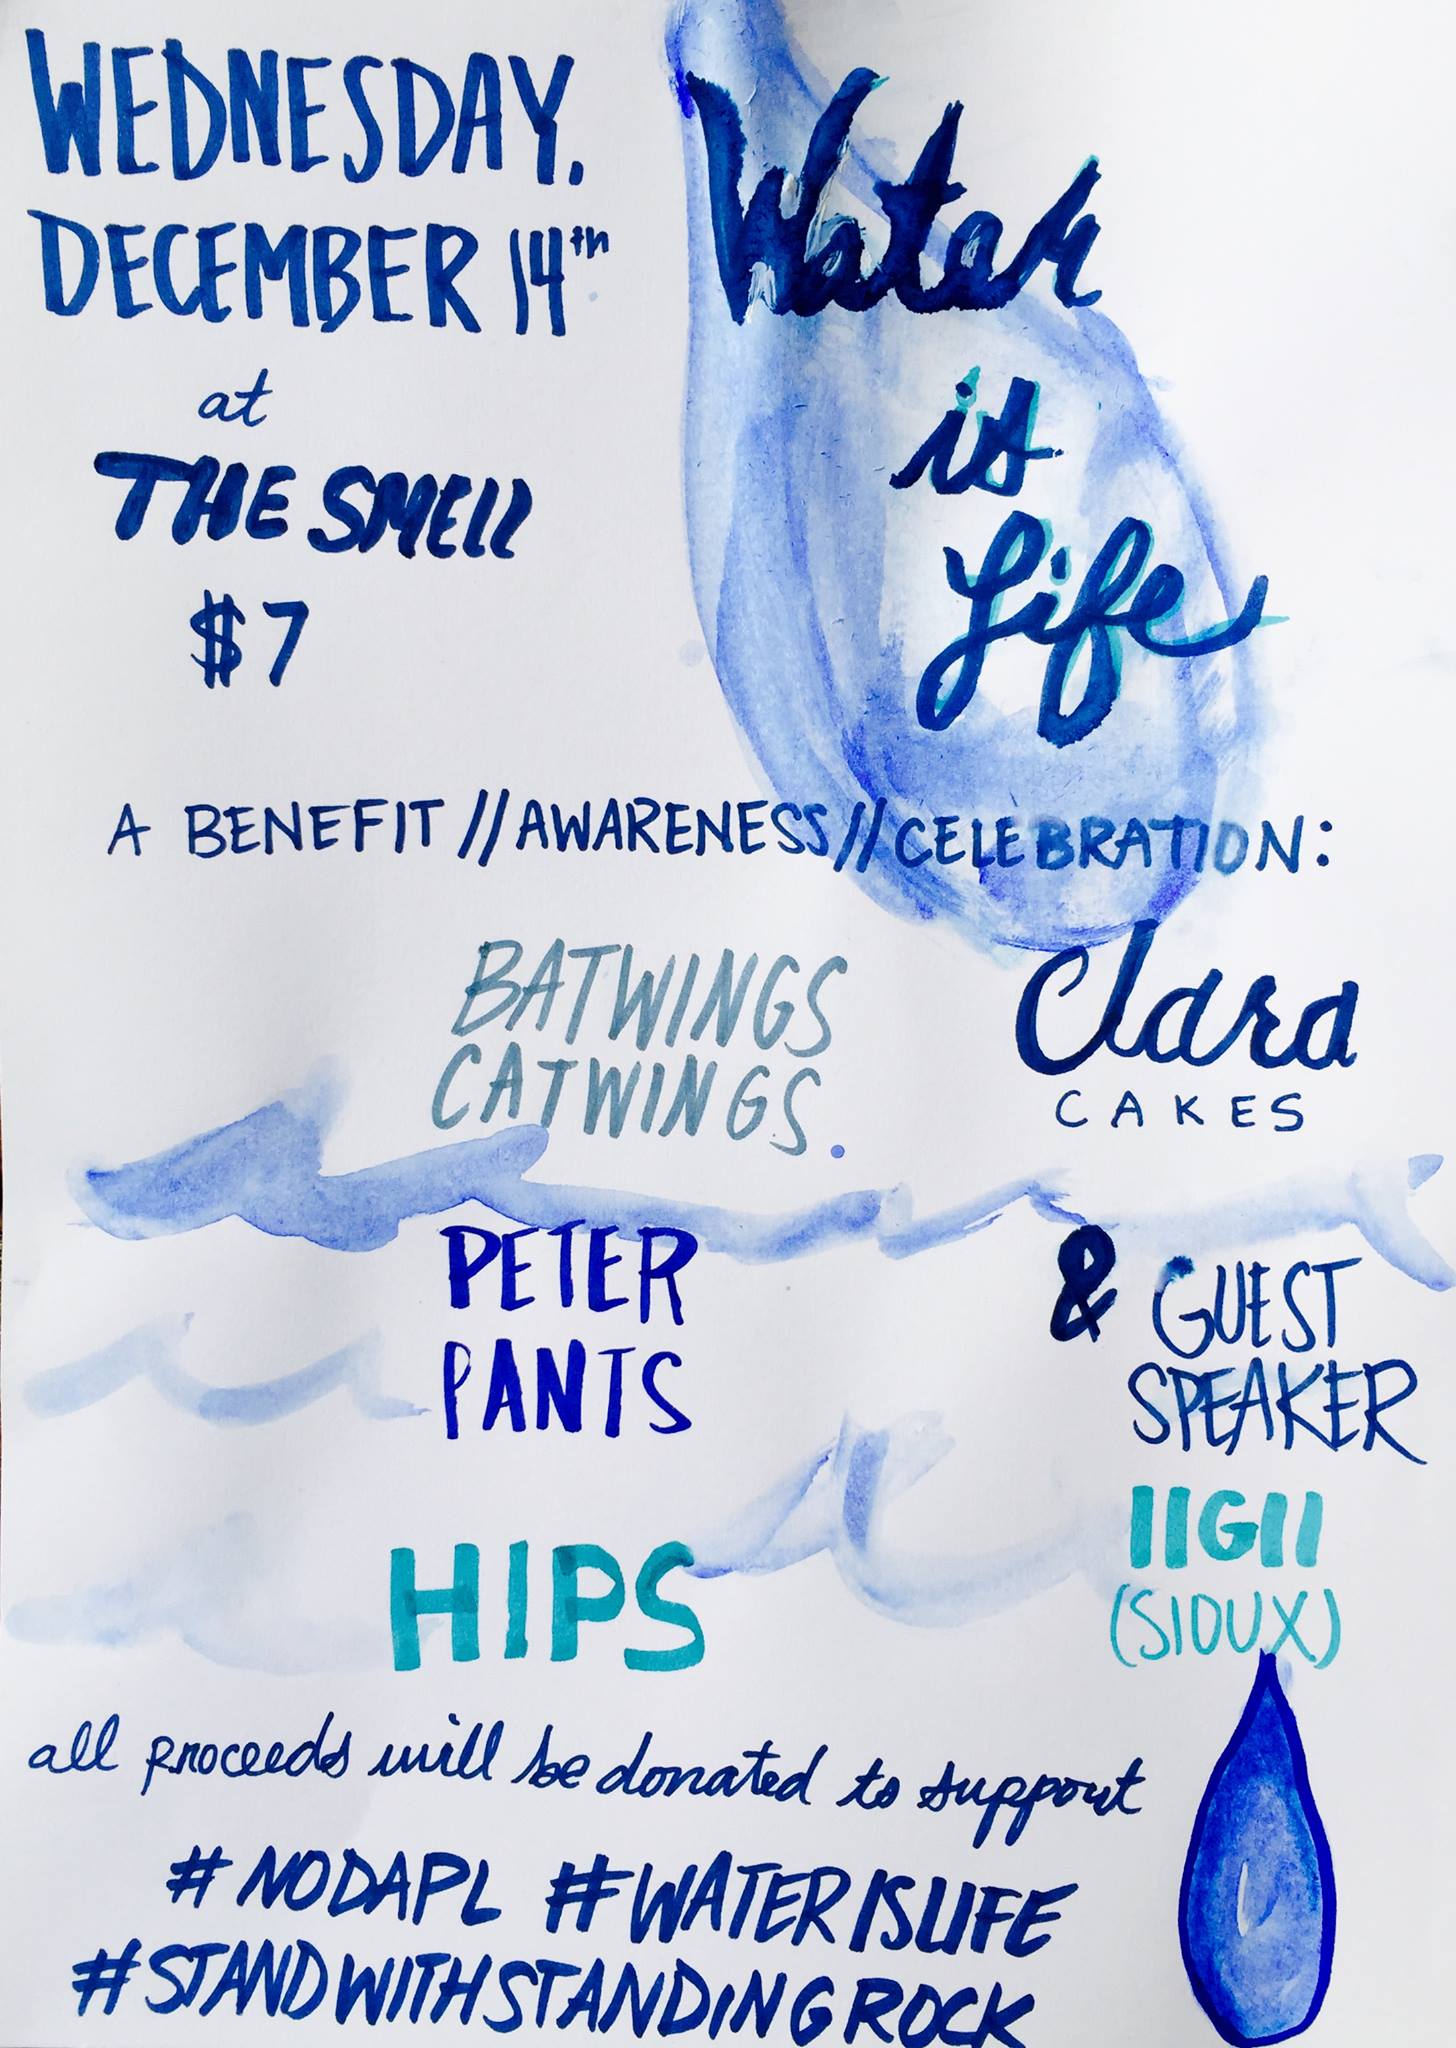 WEDNESDAY.
DECEMBER 14th
at
THE SMELL
$7
Water
is
Life
A BENEFIT // AWARENESS // CELEBRATION:
BATWINGS
CATWINGS.
Clara
CAKES
PETER
PANTS
& GUEST
SPEAKER
HIPS
IIGII
(SIOUX)
all proceeds will be donated to support
#NODAPL #WATERISLIFE
#STANDWITHSTANDINGROCK